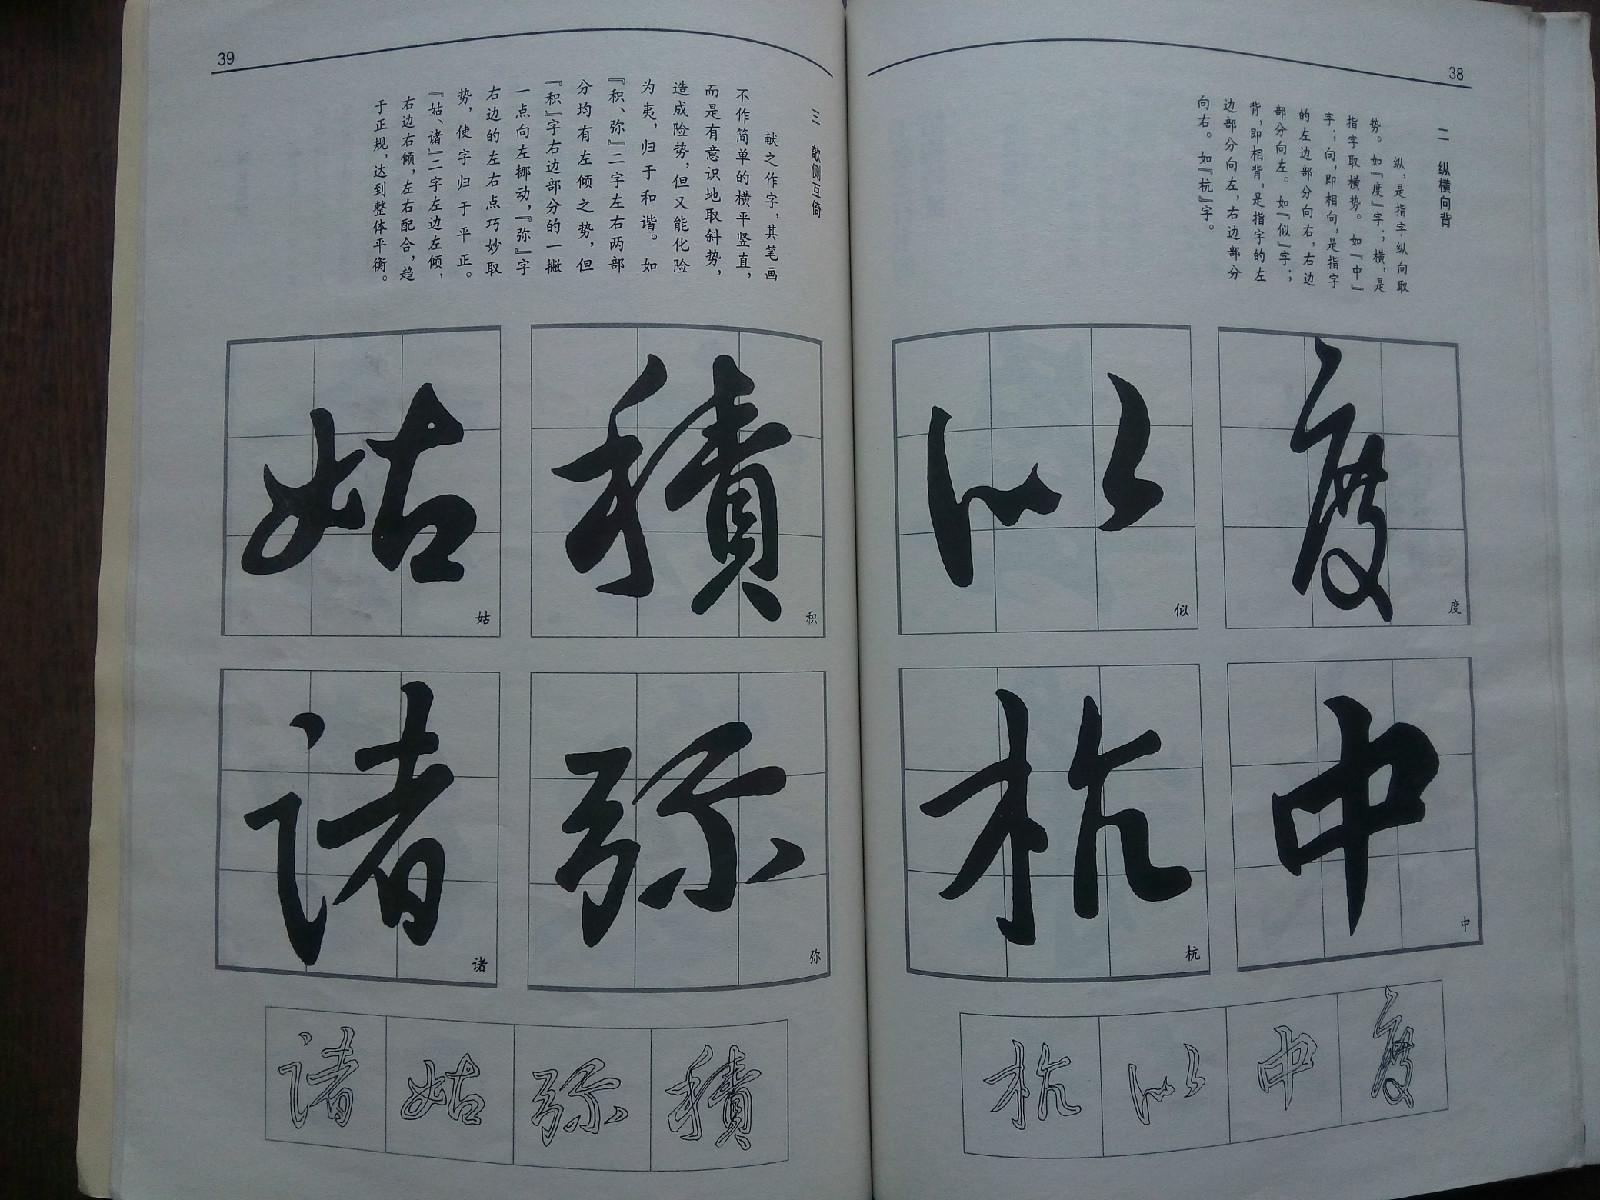 38
二 纵横向背
纵,是指字纵向取
势。如『度』字;横,是
指字取横势。如『中』
字;向,即相向,是指字
的左边部分向右,右边
部分向左。如『似』字;
背,即相背,是指字的左
边部分向左,右边部分
向右。如『杭』字。
度
度
似
似
中
中
杭
杭
度
中
似
杭
39
三 欹侧互倚
献之作字,其笔画
不作简单的横平竖直,
而是有意识地取斜势,
造成险势,但又能化险
为夷,归于和谐。如
『积、弥』二字左右两部
分均有左倾之势,但
『积』字右边部分的一撇
一点向左挪动,『弥』字
右边的左右点巧妙取
势,使字归于平正。
『姑、诸』二字左边左倾,
右边右倾,左右配合,趋
于正规,达到整体平衡。
積
积
姑
姑
弥
弥
诸
诸
積
弥
姑
诸